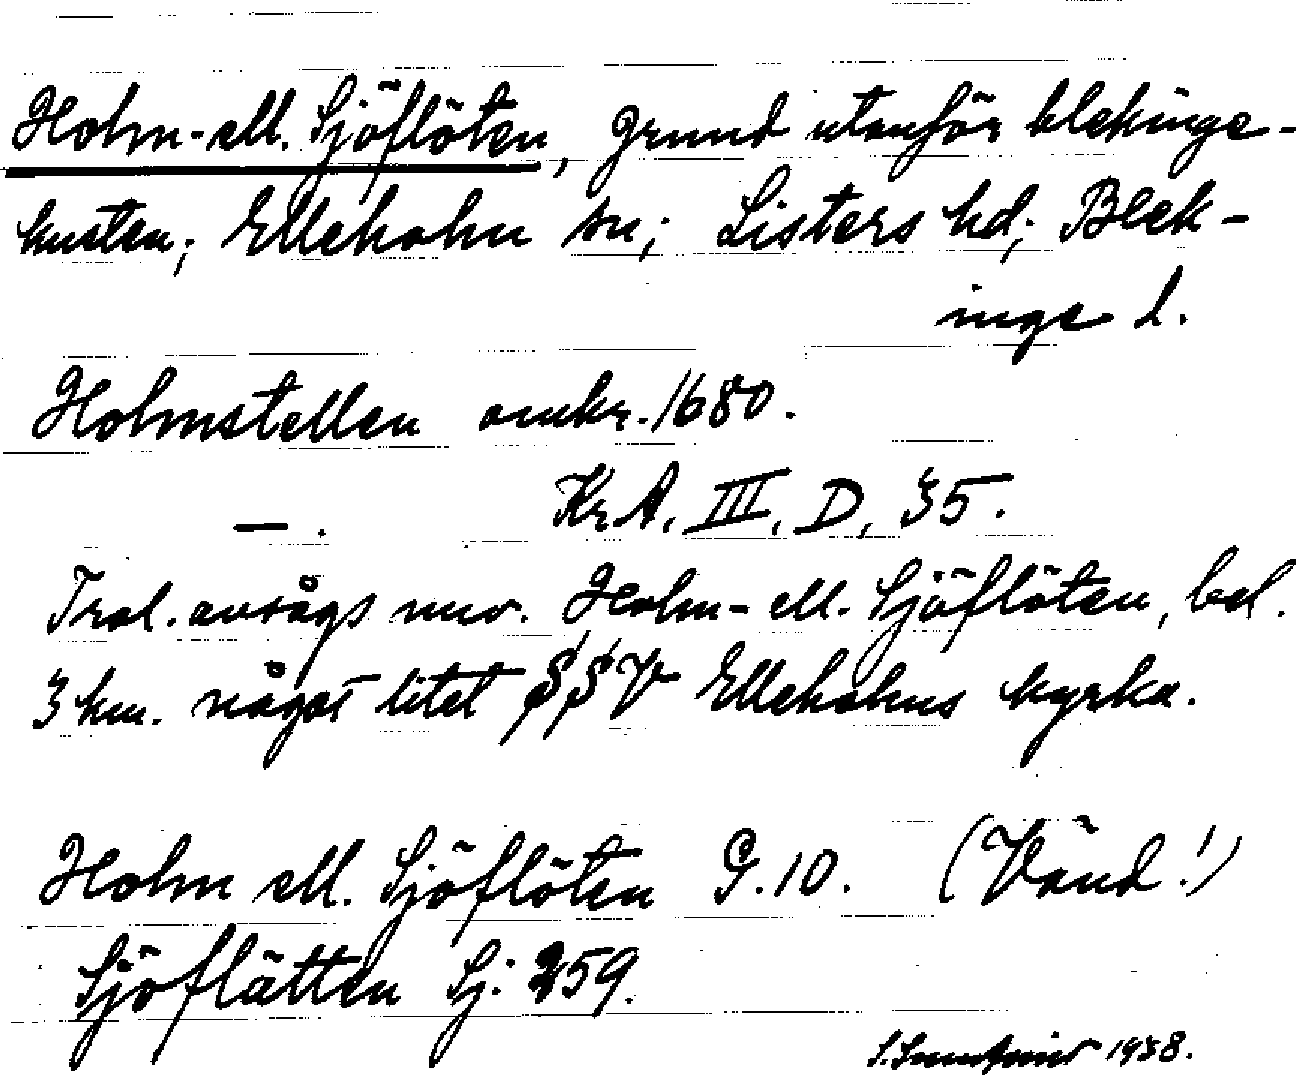 Holm- ell. Sjöflöten, grund utanför blekinge-
kusten; Elleholm sn; Listers hd; Blek-
inge l.
Holmstellen omkr. 1680.
—. Kr.A. III. D, 35.
Trol. avsågs nuv. Holm- ell. Sjöflöten, bel.
3 km. något litet SSV Elleholms kyrka.
Holm ell. Sjöflöten G. 10. (Vänd!)
Sjöflätten Sj: 259.
1938.